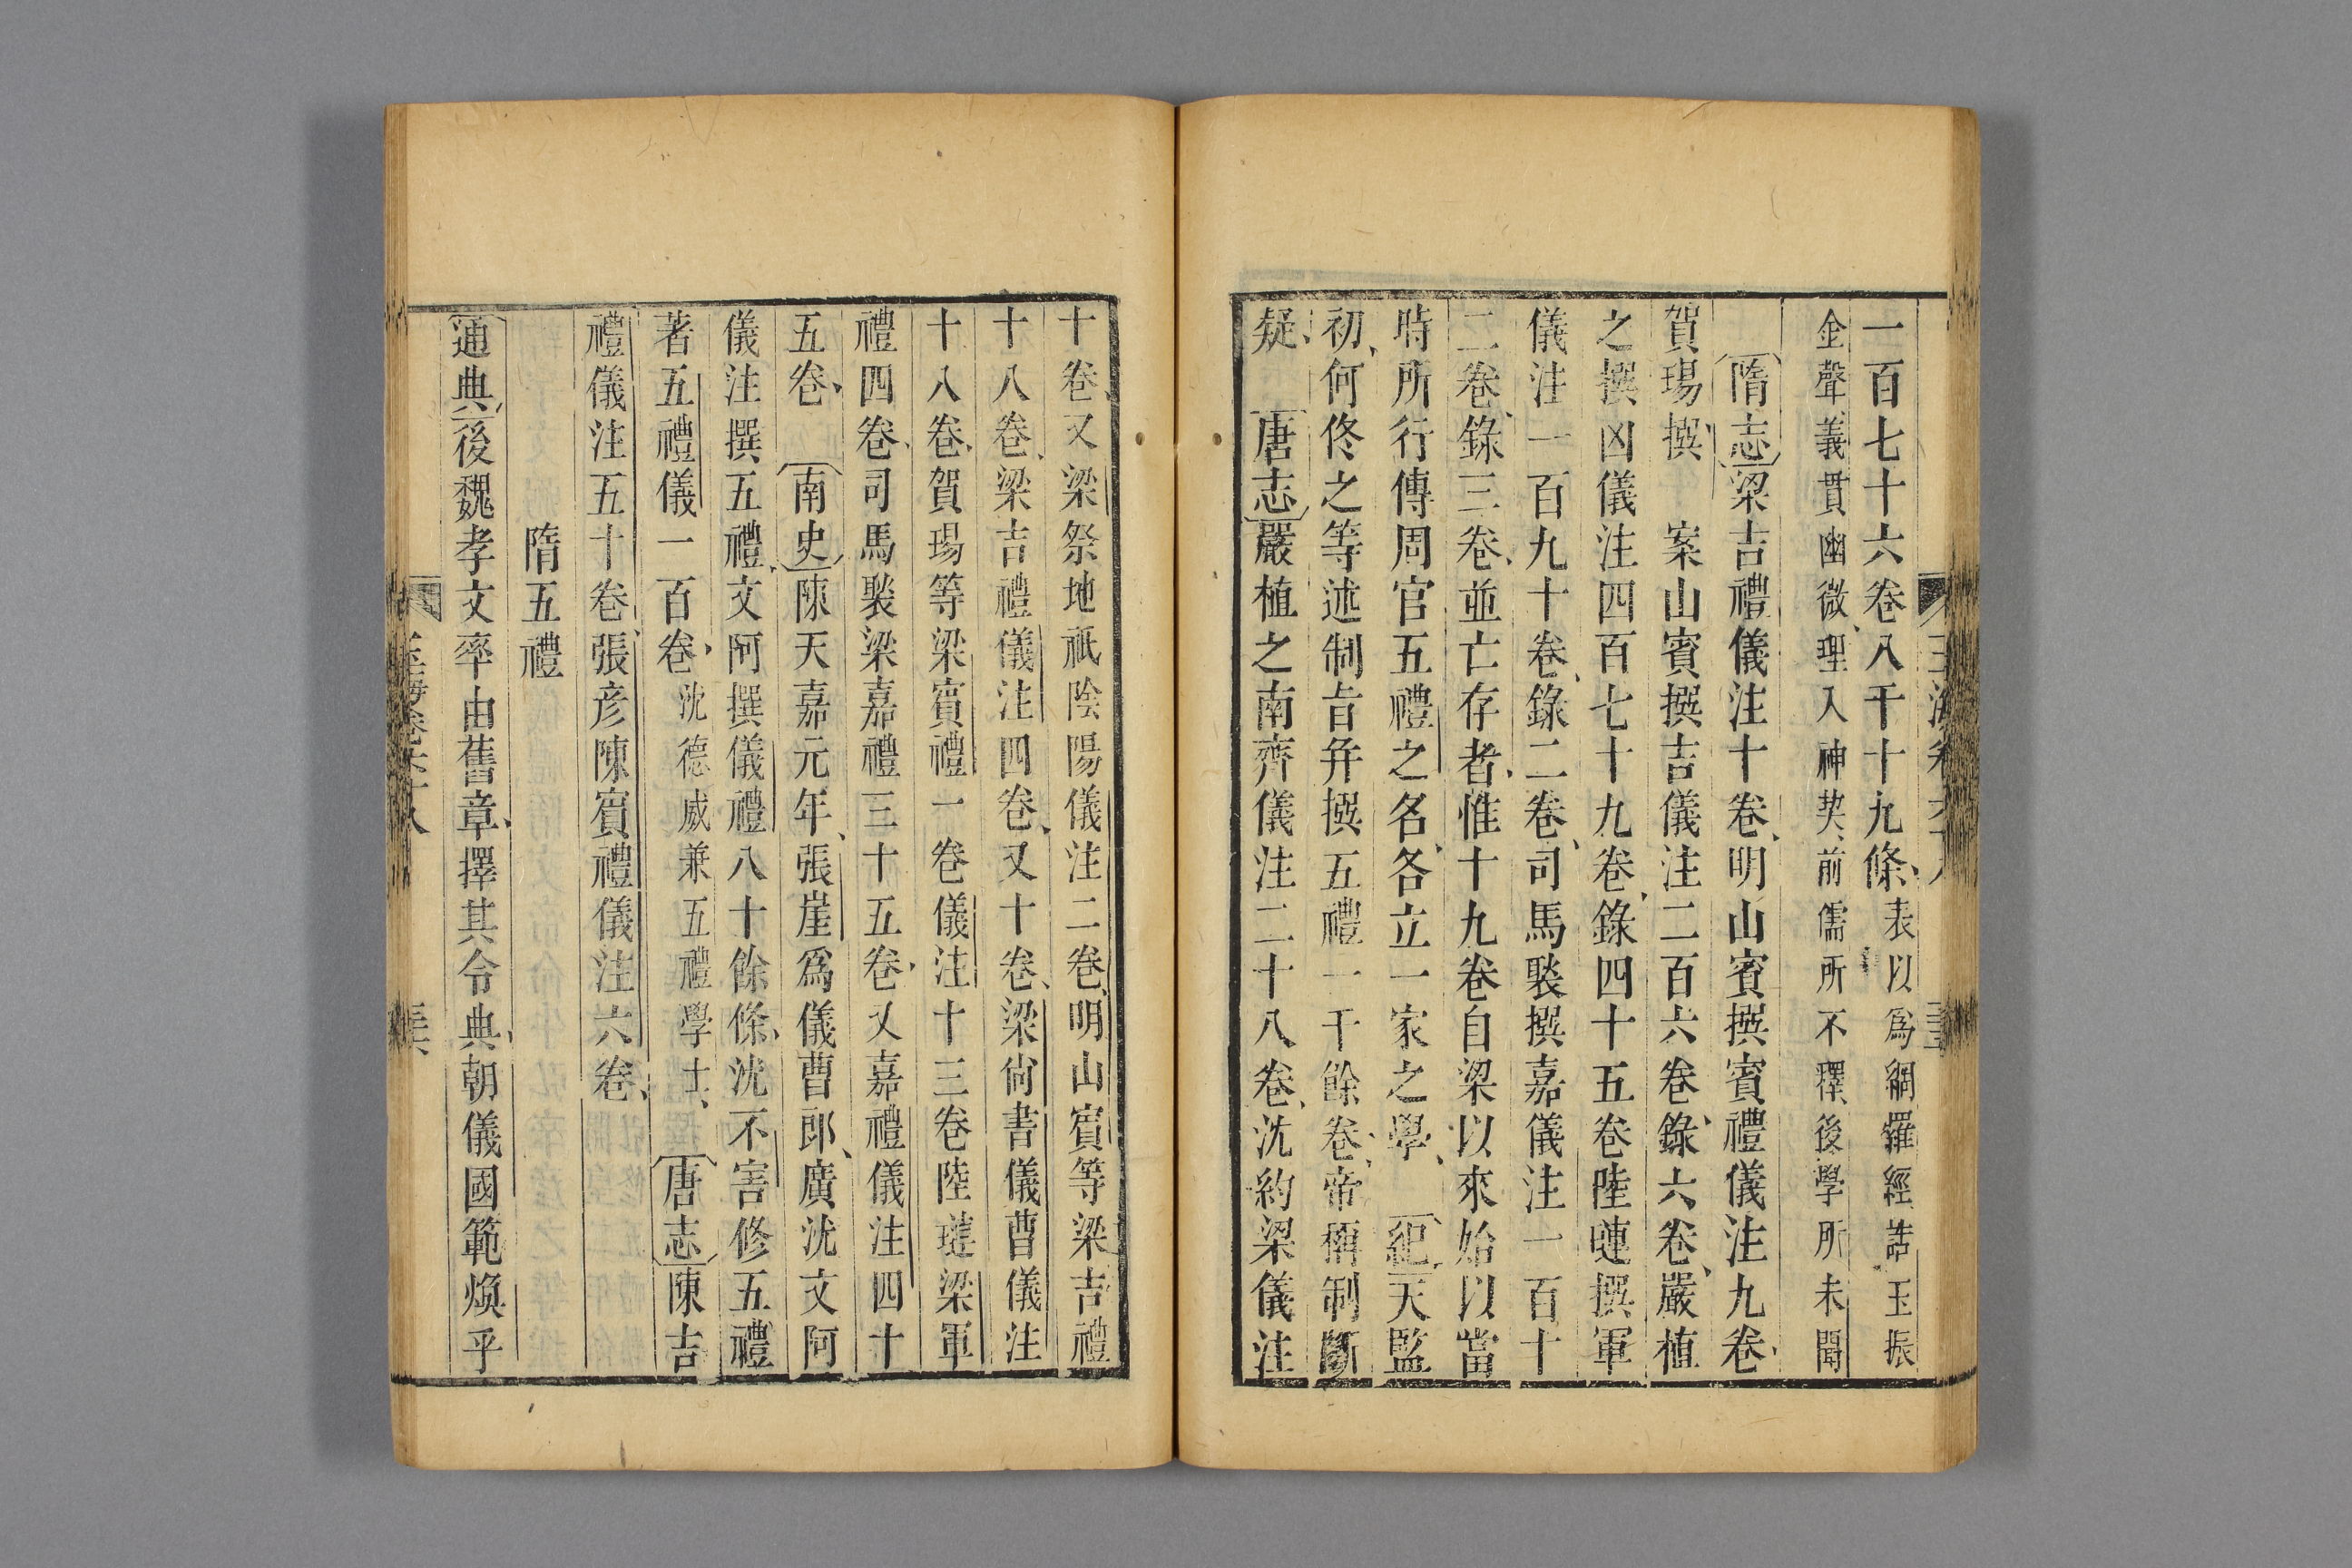 一百七十六卷八千十九條表以爲網羅經誥玉振
金聲義貫幽微理入神契前儒所不釋後學所未聞
隋志梁吉禮儀注十卷明山賓撰賓禮儀注九卷
賀瑒撰　案山賓撰吉儀注二百六卷錄六卷嚴植
之撰凶儀注四百七十九卷錄四十五卷陸璉撰軍
儀注一百九十卷錄二卷司馬褧撰嘉儀注一百十
二卷錄三卷並亡存者惟十九卷自梁以來始以當
時所行傳周官五禮之名各立一家之學　紀天監
初何佟之等述制旨幷撰五禮一千餘卷帝稱制斷
疑　唐志嚴植之南齊儀注二十八卷沈約梁儀注
十卷又梁祭地祇陰陽儀注二卷明山賓等梁吉禮
十八卷梁吉禮儀注四卷又十卷梁尙書儀曹儀注
十八卷賀瑒等梁賓禮一卷儀注十三卷陸璉梁軍
禮四卷司馬褧梁嘉禮三十五卷又嘉禮儀注四十
五卷　南史陳天嘉元年張崖爲儀曹郎廣沈文阿
儀注撰五禮文阿撰儀禮八十餘條沈不害修五禮
著五禮儀一百卷沈德威兼五禮學士　唐志陳吉
禮儀注五十卷張彥陳賓禮儀注六卷
隋五禮
通典後魏孝文率由舊章擇其令典朝儀國範煥乎